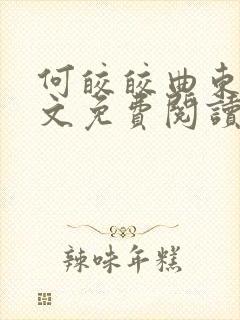 何皎皎曲東
文免費閱讀
辣味年糕